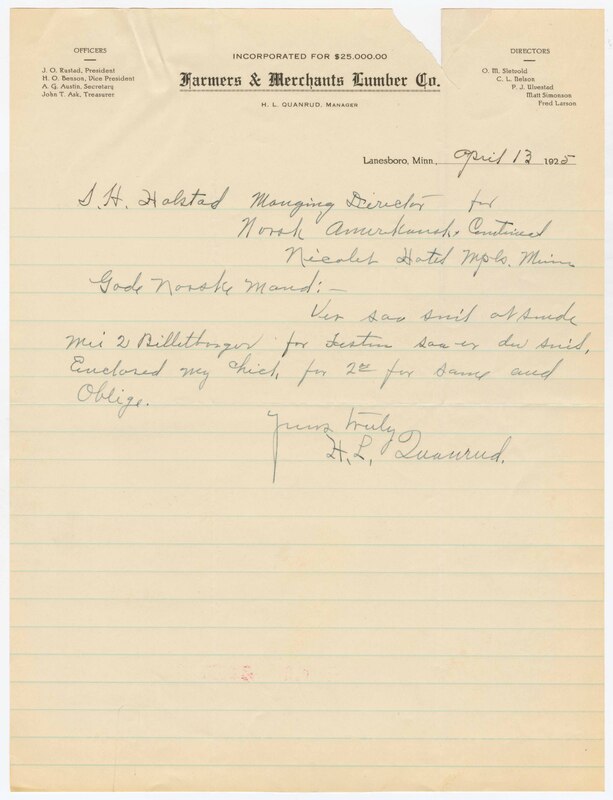 OFFICERS
J. O. Rustad, President
H. O. Benson, Vice President
A. G. Austin, Secretary
John T. Ask, Treasurer
INCORPORATED FOR $25.000.00
Farmers & Merchants Lumber Co.
H. L. QUANRUD, MANAGER
DIRECTORS
O. M. Sletvold
C. L. Nelson
P. J. Ulvestad
Matt Simonson
Fred Larson
Lanesboro, Minn., April 13 1925
S. H. Holstad Manging Director for
Norsk Amerikansk
Nicolet Hotel Mpls. Minn
Gode Norske Mand:-
Ver saa snil at sende
mei 2 Billetborger for festen saa er du snil,
Enclosed my check for 2.00 for same and
Oblige.
Yours truly
H. L. Quanrud.